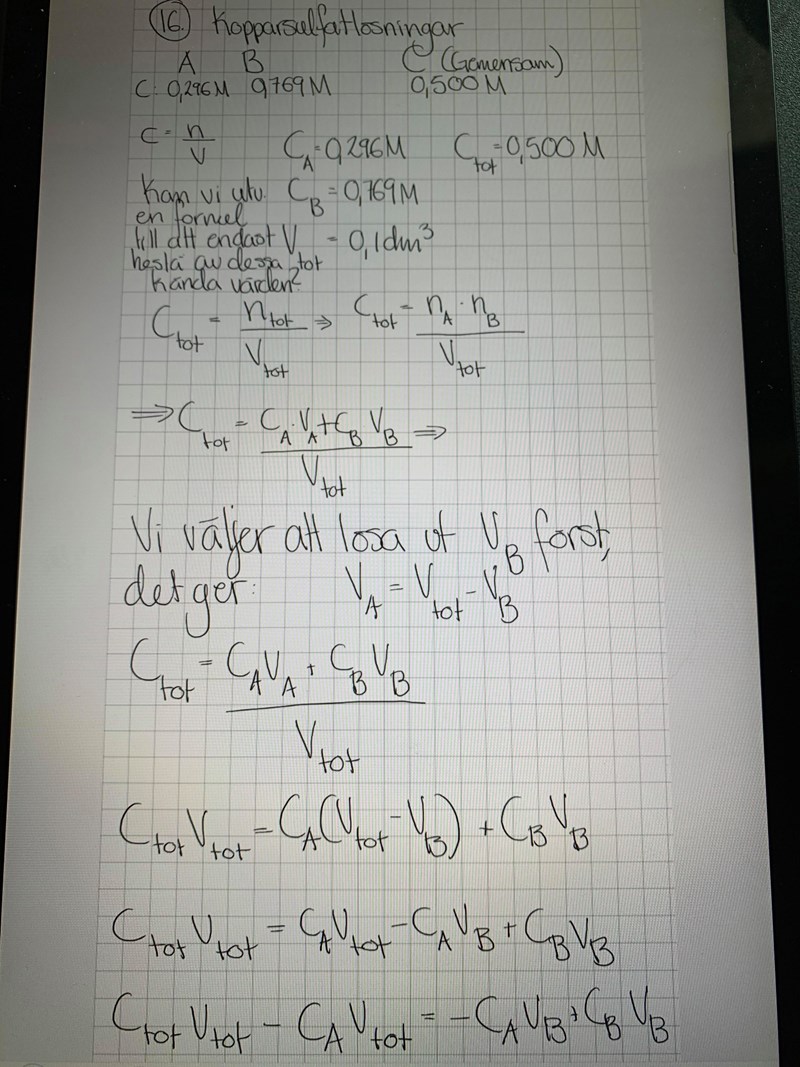 16. Kopparsulfatlosningar
A B C (Gemensam)
C: 0,296M 0,769M 0,500M
C = n/V C_A = 0,296M C_tot = 0,500M
Kan vi utv. C_B = 0,769M
en formel
till att endast V_tot = 0,1dm³
bestå av dessa
kända värden?
C_tot = n_tot/V_tot ⇒ C_tot = n_A · n_B/V_tot
⇒ C_tot = C_A · V_A + C_B V_B/V_tot ⇒
Vi väljer att losa ut V_B forst,
det ger: V_A = V_tot - V_B
C_tot = C_A V_A + C_B V_B/V_tot
C_tot V_tot = C_A (V_tot - V_B) + C_B V_B
C_tot V_tot = C_A V_tot - C_A V_B + C_B V_B
C_tot V_tot - C_A V_tot = - C_A V_B + C_B V_B